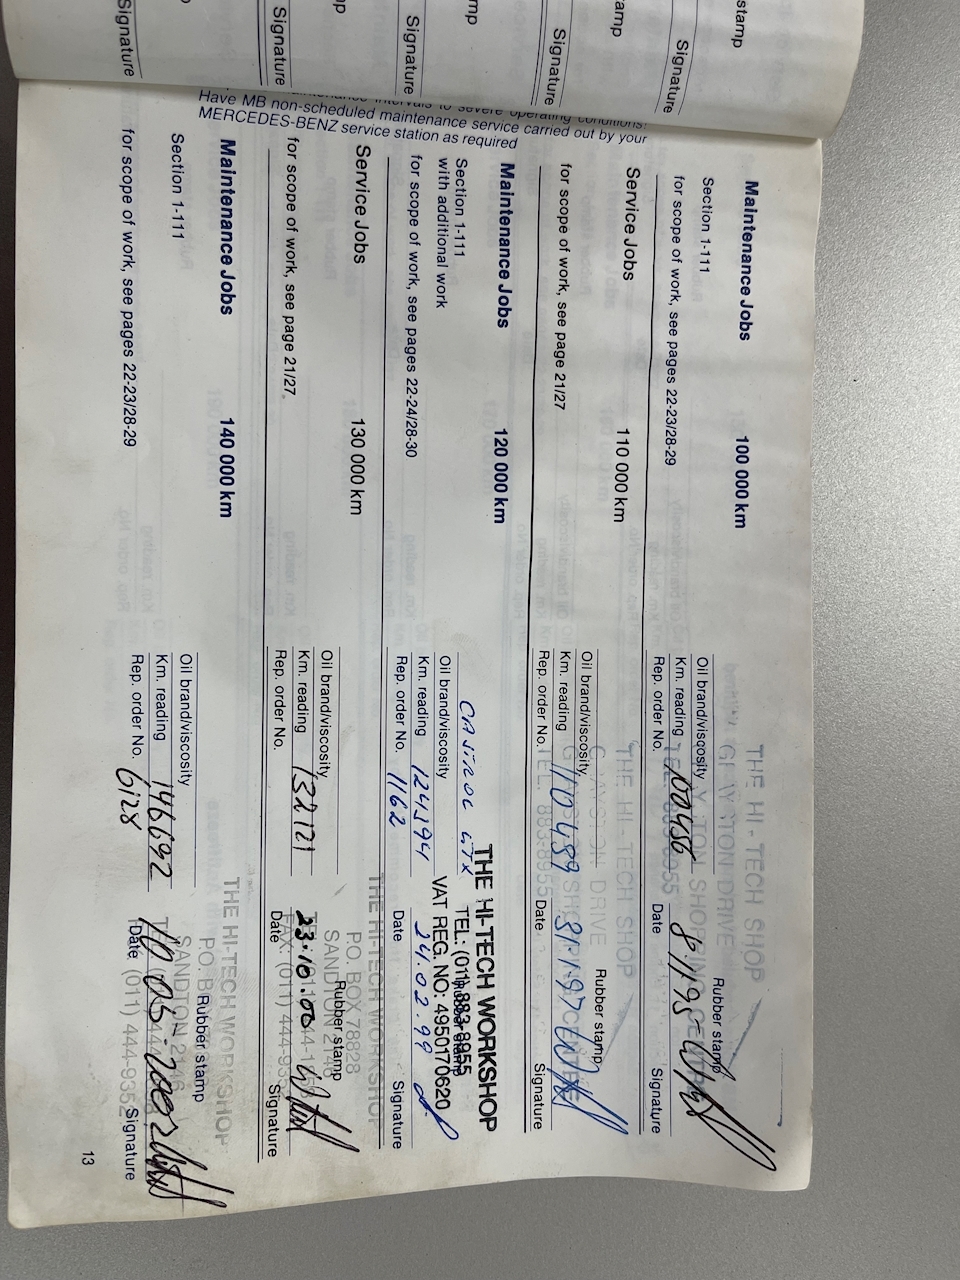 stamp
Signature
amp
Signature
mp
Signature
np
Signature
Signature
maintenance intervals to severe operating conditions.
Have MB non-scheduled maintenance service carried out by your
MERCEDES-BENZ service station as required
Maintenance Jobs 100 000 km
Section 1-111
for scope of work, see pages 22-23/28-29
THE HI-TECH SHOP
DRIVE
Rubber stamp
Oil brand/viscosity
Km. reading 100456
Rep. order No. Date Signature
Service Jobs 110 000 km
for scope of work, see page 21/27
THE HI-TECH SHOP
DRIVE
Rubber stamp
Oil brand/viscosity
Km. reading 110489
Rep. order No. TEL: 883-8955 Date Signature
Maintenance Jobs 120 000 km
Section 1-111
with additional work
for scope of work, see pages 22-24/28-30
THE HI-TECH WORKSHOP
TEL: (011) 883-8955
VAT REG. NO: 4950170620
CASTROL GTX
Rubber stamp
Oil brand/viscosity
Km. reading 124394 24.02.99
Rep. order No. 1162 Date Signature
Service Jobs 130 000 km
for scope of work, see page 21/27.
THE HI-TECH WORKSHOP
P.O. BOX 78828
SANDTON 2146
Rubber stamp
Oil brand/viscosity
Km. reading 132121 23.10.00
Rep. order No. Date Signature
FAX: (011) 444-935
Maintenance Jobs 140 000 km
Section 1-111
for scope of work, see pages 22-23/28-29
THE HI-TECH WORKSHOP
P.O. B
SANDTON 2146
Rubber stamp
Oil brand/viscosity
Km. reading 146692 10.05.2002
Rep. order No. 6128 Date Signature
(011) 444-9352
13